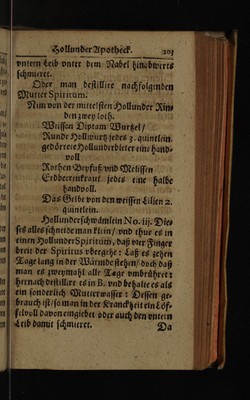 Hollunder Apotheck. 203
vntern Leib vnter dem Nabel hinabwerts
schmieret.
Oder man destillire nachfolgenden
Mutter Spiritum.
Nim von der mittelsten Hollunder Rin-
den zwey loth.
Weissen Diptam Wurtzel/
Runde Hollwurtz jedes 3. quintlein.
gedörrete Hollunderbletter eine hand-
voll
Rothen Beyfuß vnd Melissen
Erdbeerenkraut jedes eine halbe
handvoll.
Das Gelbe von den weissen Lilien 2.
quintlein.
Hollunderschwämlein No. iij. Die-
ses alles schneide man klein/ vnd thue es in
einen Hollunder Spiritum, daß vier Finger
breit der Spiritus vbergehe: Laß es zehen
Tage lang in der Wärmde stehen/ doch daß
man es zweymahl alle Tage vmbrühre:
hernach destillier es in B. vnd behalte es als
ein sonderlich Mutterwasser: Dessen ge-
brauch ist/ so man in der Kranckheit ein Löf-
felvoll davon eingibet oder auch den vntern
Leib damit schmieret.
Da